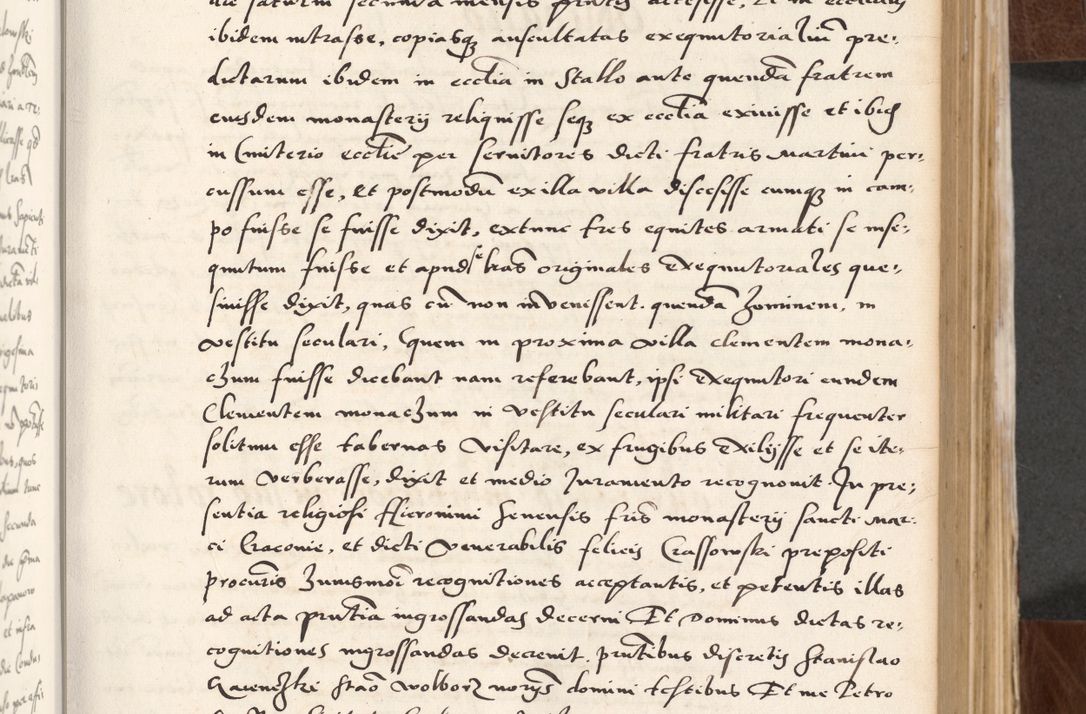 die saturni secunda mensis prñtis accesisse, Et in ecclesiam
ibidem intrasse, copiasqȝ auscultatas exequutorialiũ pre-
dictarum ibidem in ecclĩa in Stallo ante quendã fratrem
eiusdem monasterij reliquisse seqȝ ex ecclĩa exivisse et ibid
in Cmiterio ecclĩe per servitores dicti fratris Martini per-
cussum esse, Et postmodũ ex illa villa discesisse cumqȝ in cam-
po fuisse se fuisse dixit, extunc tres equites armati se inse-
qutum fuisse et apud se lr̃as originales Exequutoriales que-
sivisse dixit, quas cũ non invenissent. quendã hominem, in
vestitu seculari, quem in proxima villa clementem mona-
chum fuisse dicebant nam referebant, ipsi Exequutori eundem
Clementem monachum in vestitu seculari militari frequenter
solitum esse tabernas visitare, ex frugibus exilijsse et se ite-
rum verberasse, dixit et medio Juramento recognovit. In pre-
sentia religiosi Hieronimi Senensis fris̃ monasterij sancti Mar-
ci Cracovie, et dicti venerabilis felicis Crassowski prepositi
procuris̃ huiusmoĩ recognitiones acceptantis, et petentis illas
ad acta prñtia ingrossandas decerni Et Dominus dictas re-
cognitiones ingrossandas decrevit. prñtibus discretis Stanislao
Stão Wolborz domini testibus Et me Petro